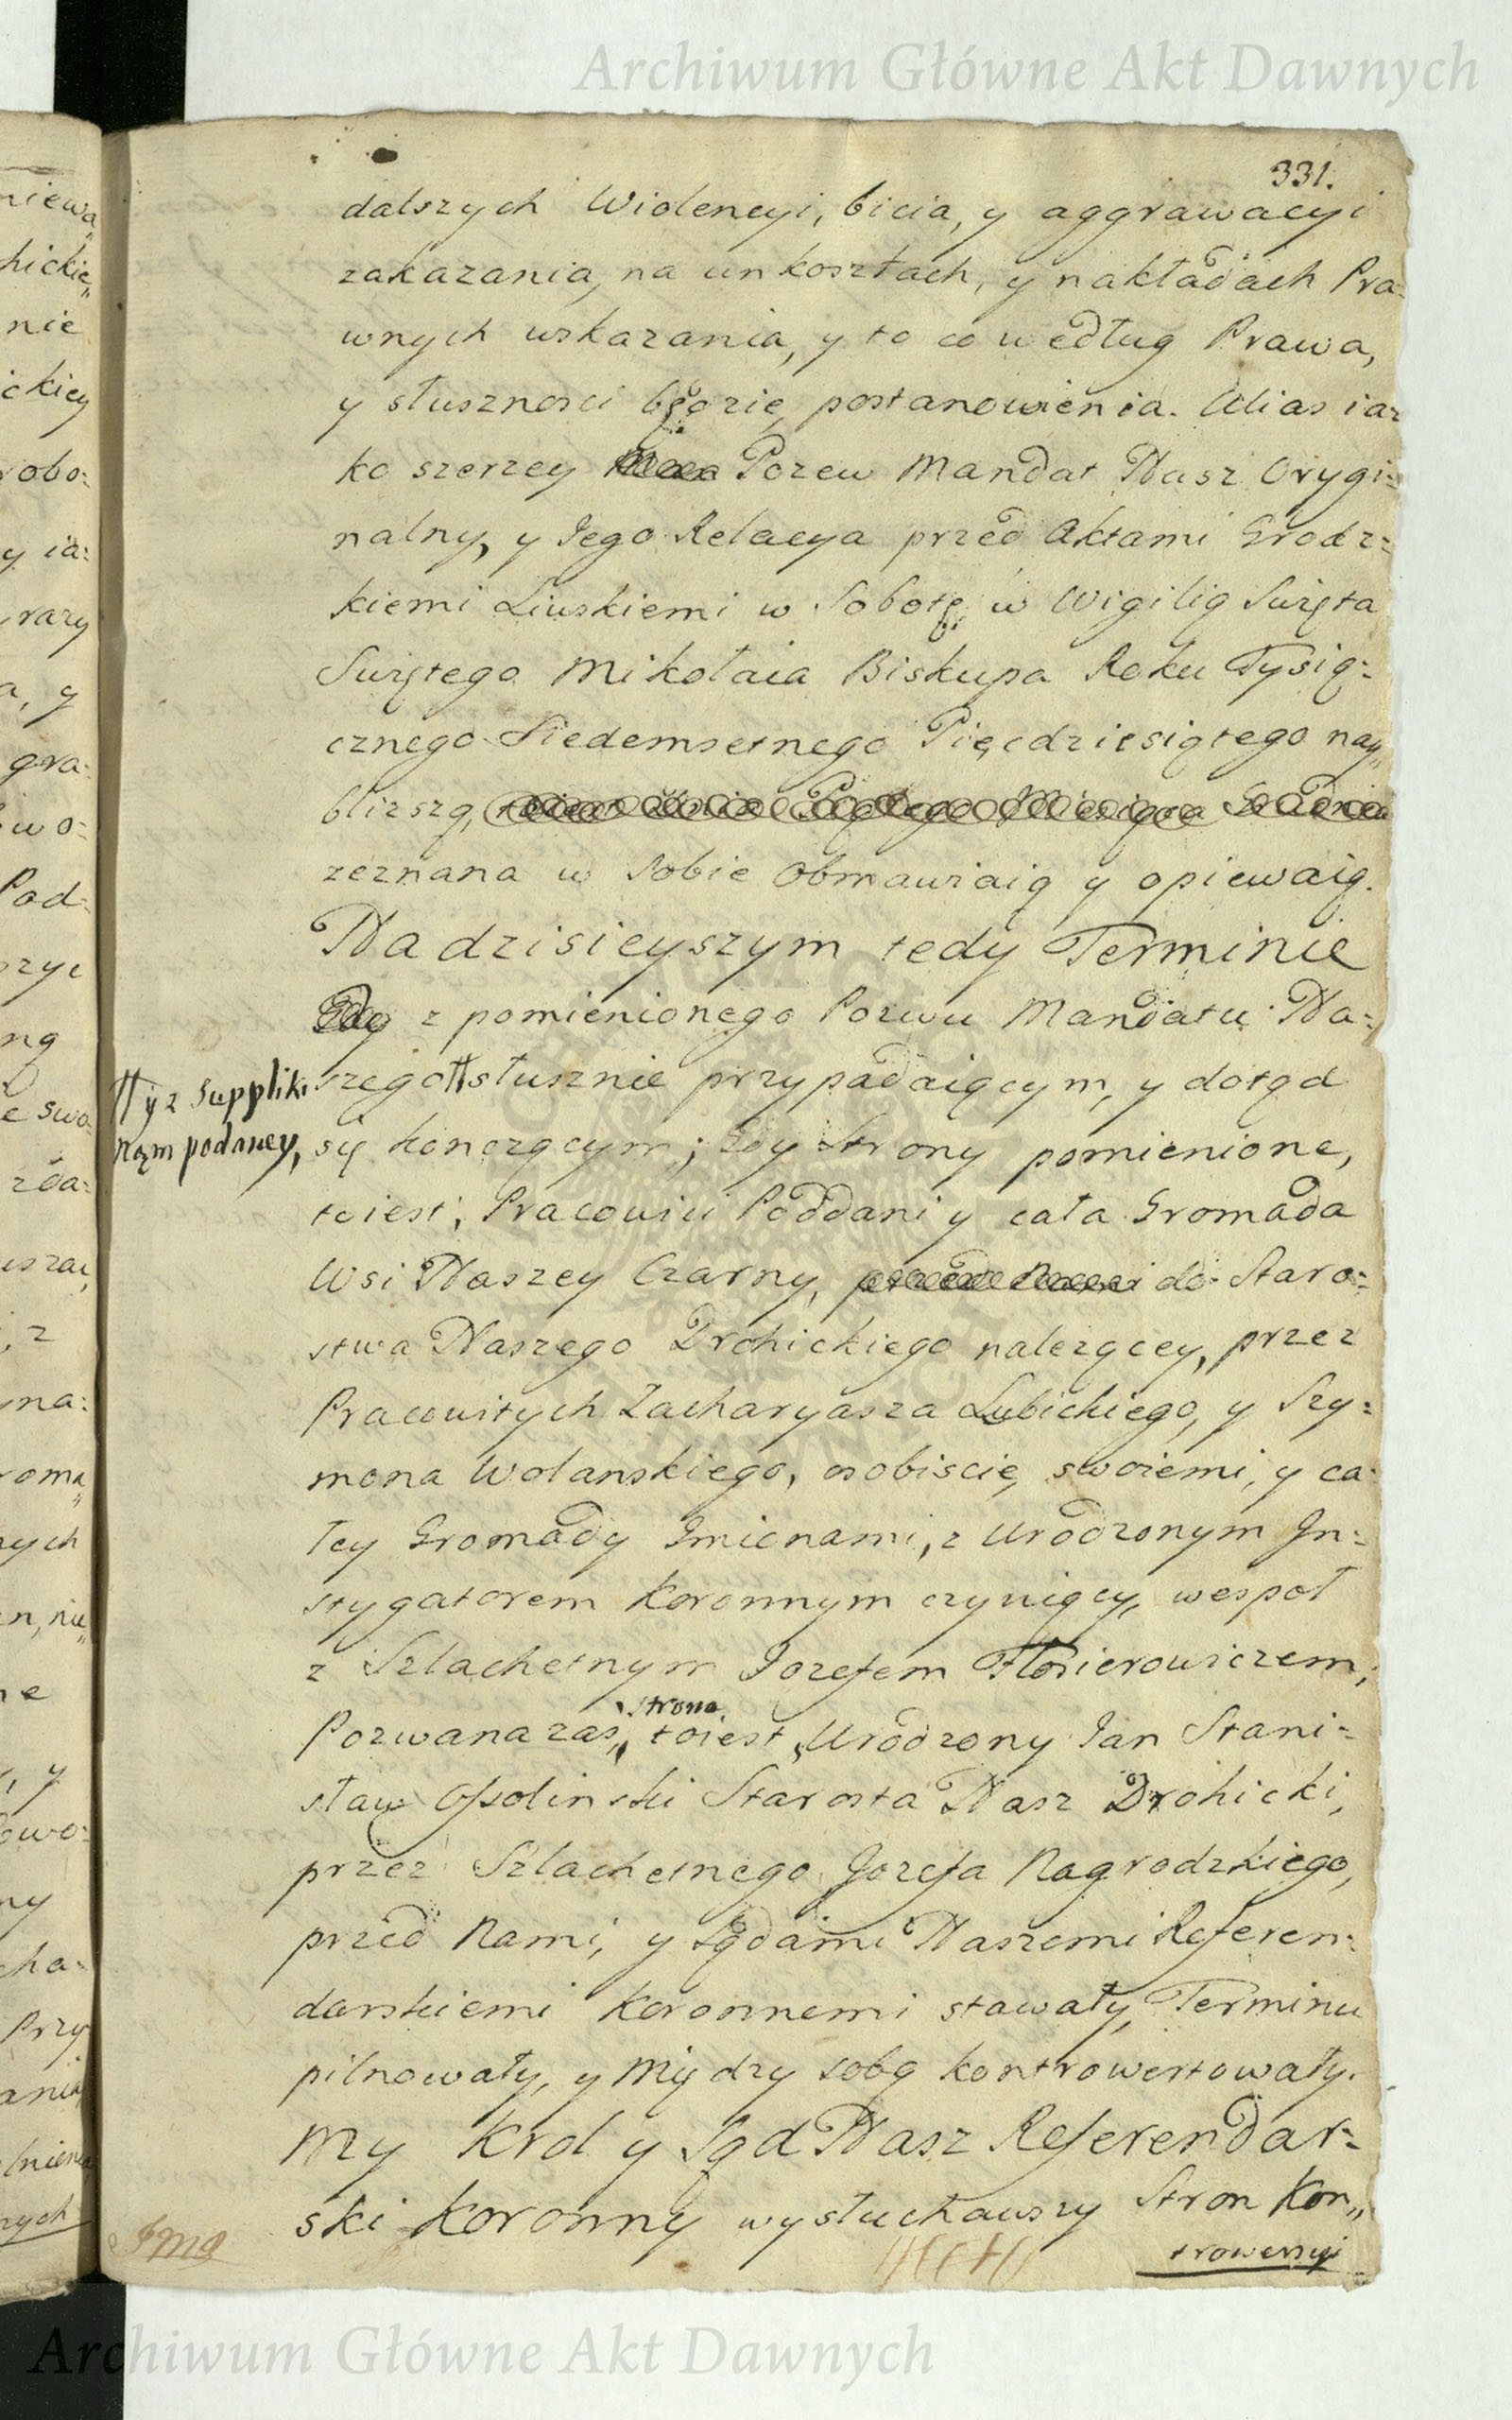 Archiwum Główne Akt Dawnych
331.
dalszych Wiolencyi, bicia, y aggrawacyi
zakazania, na unkosztach, y nakładach Pra-
wnych wskazania, y to co według Prawa,
y słusznosci będzie, postanowienia. Alias ia-
ko szerzey Pozew Mandat Nasz Orygi-
nalny, y Jego Relacya przed Aktami Grodz-
kiemi Liwskiemi w Sobotę, w Wigilią Swięta
Swiętego Mikołaia Biskupa Roku Tysią-
cznego Siedemsetnego Pięcdziesiątego nay„
blizszą, Dnia Piątego Miesiąca Grudnia
zeznana w Sobie obmawiaią y opiewaią.
Na dzisieyszym tedy Terminie
z pomienionego Pozwu Mandatu Na-
szego # słusznie przypadaiącym, y dotąd
# y z Suppliki
Nam podaney,
się konczącym; Gdy Strony pomienione,
toiest, Pracowici Poddani y cała Gromada
Wsi Naszey Czarny, do Staro-
stwa Naszego Drohickiego należącey, przez
Pracowitych Zacharyasza Lubickiego, y Szy-
mona Wolanskiego, osobiscie, swoiemi, y ca-
łey Gromady Imionami, z Urodzonym In-
stygatorem Koronnym czyniący, wespoł
z Szlachetnym Jozefem Florierowiczem;
Pozwana zas, strona toiest, Urodzony Jan Stani-
sław Ossolinski Starosta Nasz Drohicki,
przez Szlachetnego Jozefa Nagrodzkiego,
przed Nami, y Sądami Naszemi Referen-
darskiemi Koronnemi stawały, Terminu
pilnowały, y między sobą kontrowertowały.
My Krol y Sąd Nasz Referendar-
ski Koronny wysłuchawszy Stron Kon„
trowersyi
Archiwum Główne Akt Dawnych